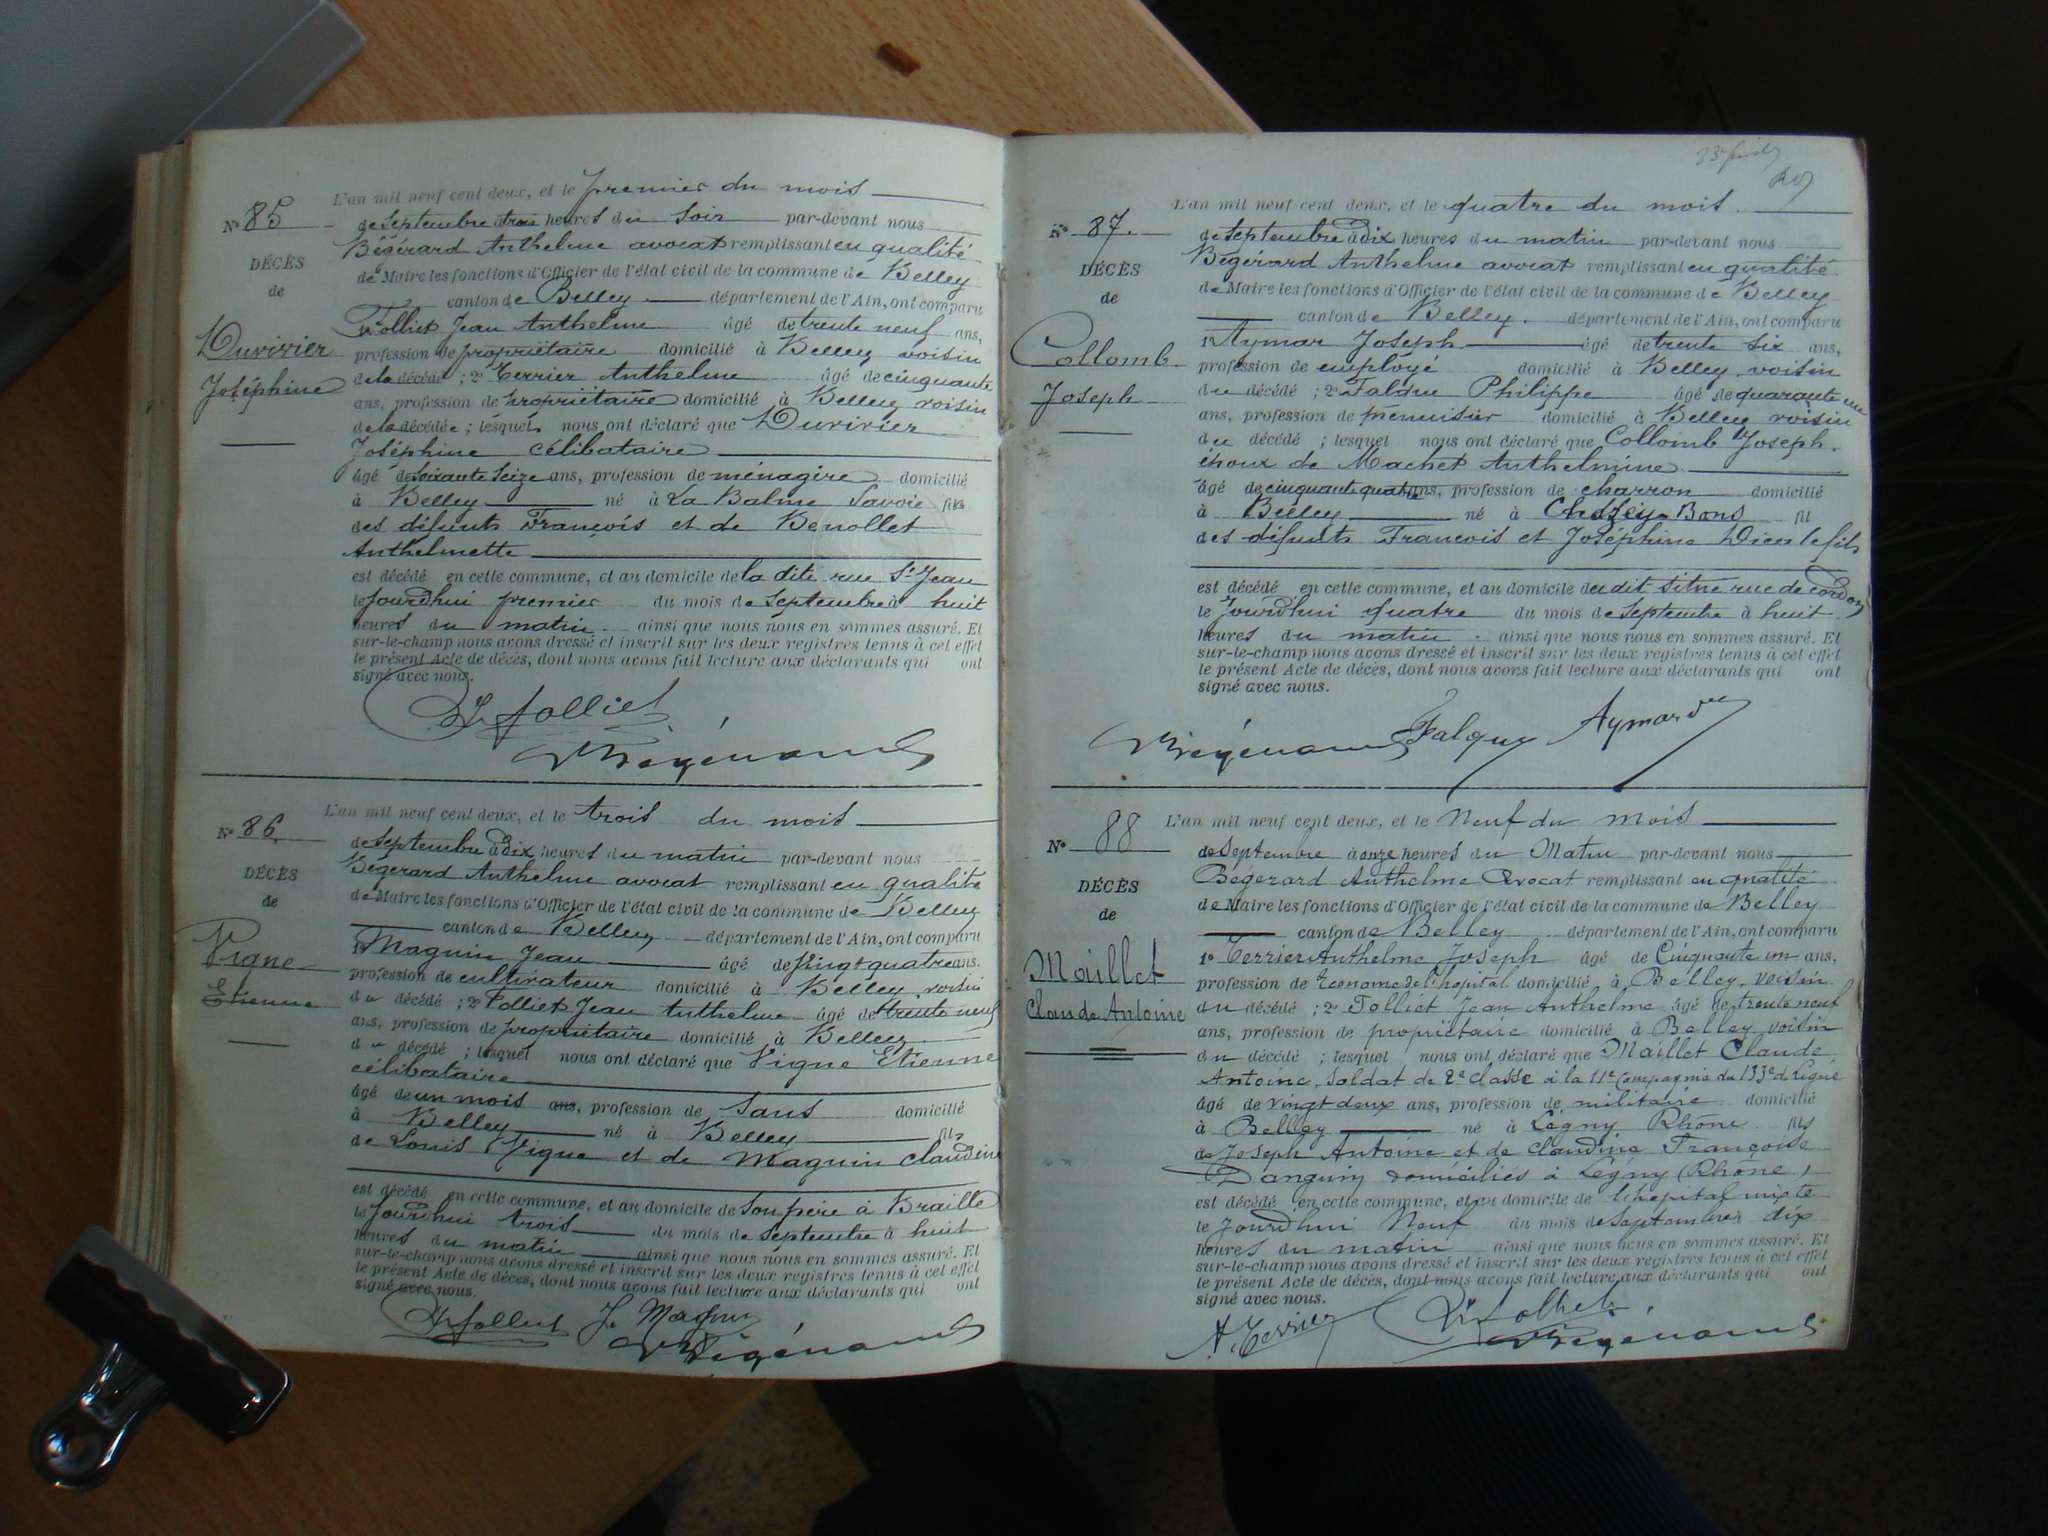 L'an mil neuf cent deux, et le premier du mois
N° 85
de septembre à trois heures du soir par-devant nous
Bégérard Anthelme avocat remplissant en qualité
DÉCÈS
de Maire les fonctions d'Officier de l'état civil de la commune de Belley
de
canton de Belley département de l'Ain, ont comparu
Duvivier
1° Tolliet Jean Anthelme âgé de trente neuf ans,
profession de propriétaire domicilié à Belley voisin
Joséphine
de la décédé ; 2° Terrier Anthelme âgé de cinquante
ans, profession de propriétaire domicilié à Belley voisin
de la décédée ; lesquels nous ont déclaré que Duvivier
Joséphine célibataire
âgé de soixante seize ans, profession de ménagère domicilié
à Belley né à La Balme Savoie fille
des défunts François et de Benollet
Anthelmette
est décédé en cette commune, et au domicile de la dite rue St Jean
le Jourd'hui premier du mois de septembre à huit
heures du matin. ainsi que nous nous en sommes assuré. Et
sur-le-champ nous avons dressé et inscrit sur les deux registres tenus à cet effet
le présent Acte de décès, dont nous avons fait lecture aux déclarants qui ont
signé avec nous.
Tolliet
Bégérard
L'an mil neuf cent deux, et le trois du mois
N° 86
de septembre à dix heures du matin par-devant nous
Bégérard Anthelme avocat remplissant en qualité
DÉCÈS
de Maire les fonctions d'Officier de l'état civil de la commune de Belley
de
canton de Belley département de l'Ain, ont comparu
Vigne
1° Maguin Jean âgé de vingt quatre ans.
profession de cultivateur domicilié à Belley, voisin
Etienne
du décédé ; 2° Tolliet Jean Anthelme âgé de trente neuf
ans, profession de propriétaire domicilié à Belley
du décédé ; lesquel nous ont déclaré que Vigne Etienne
célibataire
âgé de un mois ans, profession de sans domicilié
à Belley né à Belley fils
de Louis Vigne et de Maguin Claudine
est décédé en cette commune, et au domicile de son père à Braille
le Jourd'hui trois du mois de septembre à huit
heures du matin ainsi que nous nous en sommes assuré. Et
sur-le-champ nous avons dressé et inscrit sur les deux registres tenus à cet effet
le présent Acte de décès, dont nous avons fait lecture aux déclarants qui ont
signé avec nous.
Tolliet J. Maguin
Bégérard
L'an mil neuf cent deux, et le quatre du mois
N° 87.
de septembre à dix heures du matin par-devant nous
Bégérard Anthelme avocat remplissant en qualité
DÉCÈS
de Maire les fonctions d'Officier de l'état civil de la commune de Belley
de
canton de Belley. département de l'Ain, ont comparu
Collomb
1° Aymar Joseph âgé de trente six ans,
profession de employé domicilié à Belley, voisin
Joseph
du décédé ; 2° Falque Philippe âgé de quarante un
ans, profession de menuisier domicilié à Belley voisin
du décédé ; lesquel nous ont déclaré que Collomb Joseph.
époux de Machet Anthelmine
âgé de cinquante quatre ans, profession de charron domicilié
à Belley né à Chézey-Bons fil
des défunts François et Joséphine Dien le fils
est décédé en cette commune, et au domicile du dit situé rue de Cordon
le Jourd'hui quatre du mois de septembre à huit
heures du matin. ainsi que nous nous en sommes assuré. Et
sur-le-champ nous avons dressé et inscrit sur les deux registres tenus à cet effet
le présent Acte de décès, dont nous avons fait lecture aux déclarants qui ont
signé avec nous.
Bégérard Falque Aymard
L'an mil neuf cent deux, et le Neuf du mois
N° 88
de septembre à onze heures du Matin par-devant nous
Bégérard Anthelme Avocat remplissant en qualité
DÉCÈS
de Maire les fonctions d'Officier de l'état civil de la commune de Belley
de
canton de Belley département de l'Ain, ont comparu
Maillet
1° Terrier Anthelme Joseph âgé de Cinquante un ans,
profession de Econome de l'hopital domicilié à Belley, voisin
Claude Antoine
du décédé ; 2° Tolliet Jean Anthelme âgé de trente neuf
ans, profession de propriétaire domicilié à Belley, voisin
du décédé ; lesquel nous ont déclaré que Maillet Claude
Antoine, Soldat de 2e classe à la 11e Compagnie du 133e de Ligne
âgé de vingt deux ans, profession de militaire domicilié
à Belley né à Légny Rhône fils
de Joseph Antoine et de Claudine Françoise
Danguin domiciliés à Légny (Rhône)
est décédé en cette commune, et au domicile de l'hopital mixte
le Jourd'hui Neuf du mois de septembre à dix
heures du matin ainsi que nous nous en sommes assuré. Et
sur-le-champ nous avons dressé et inscrit sur les deux registres tenus à cet effet
le présent Acte de décès, dont nous avons fait lecture aux déclarants qui ont
signé avec nous.
A. Terrier Tolliet
Bégérard